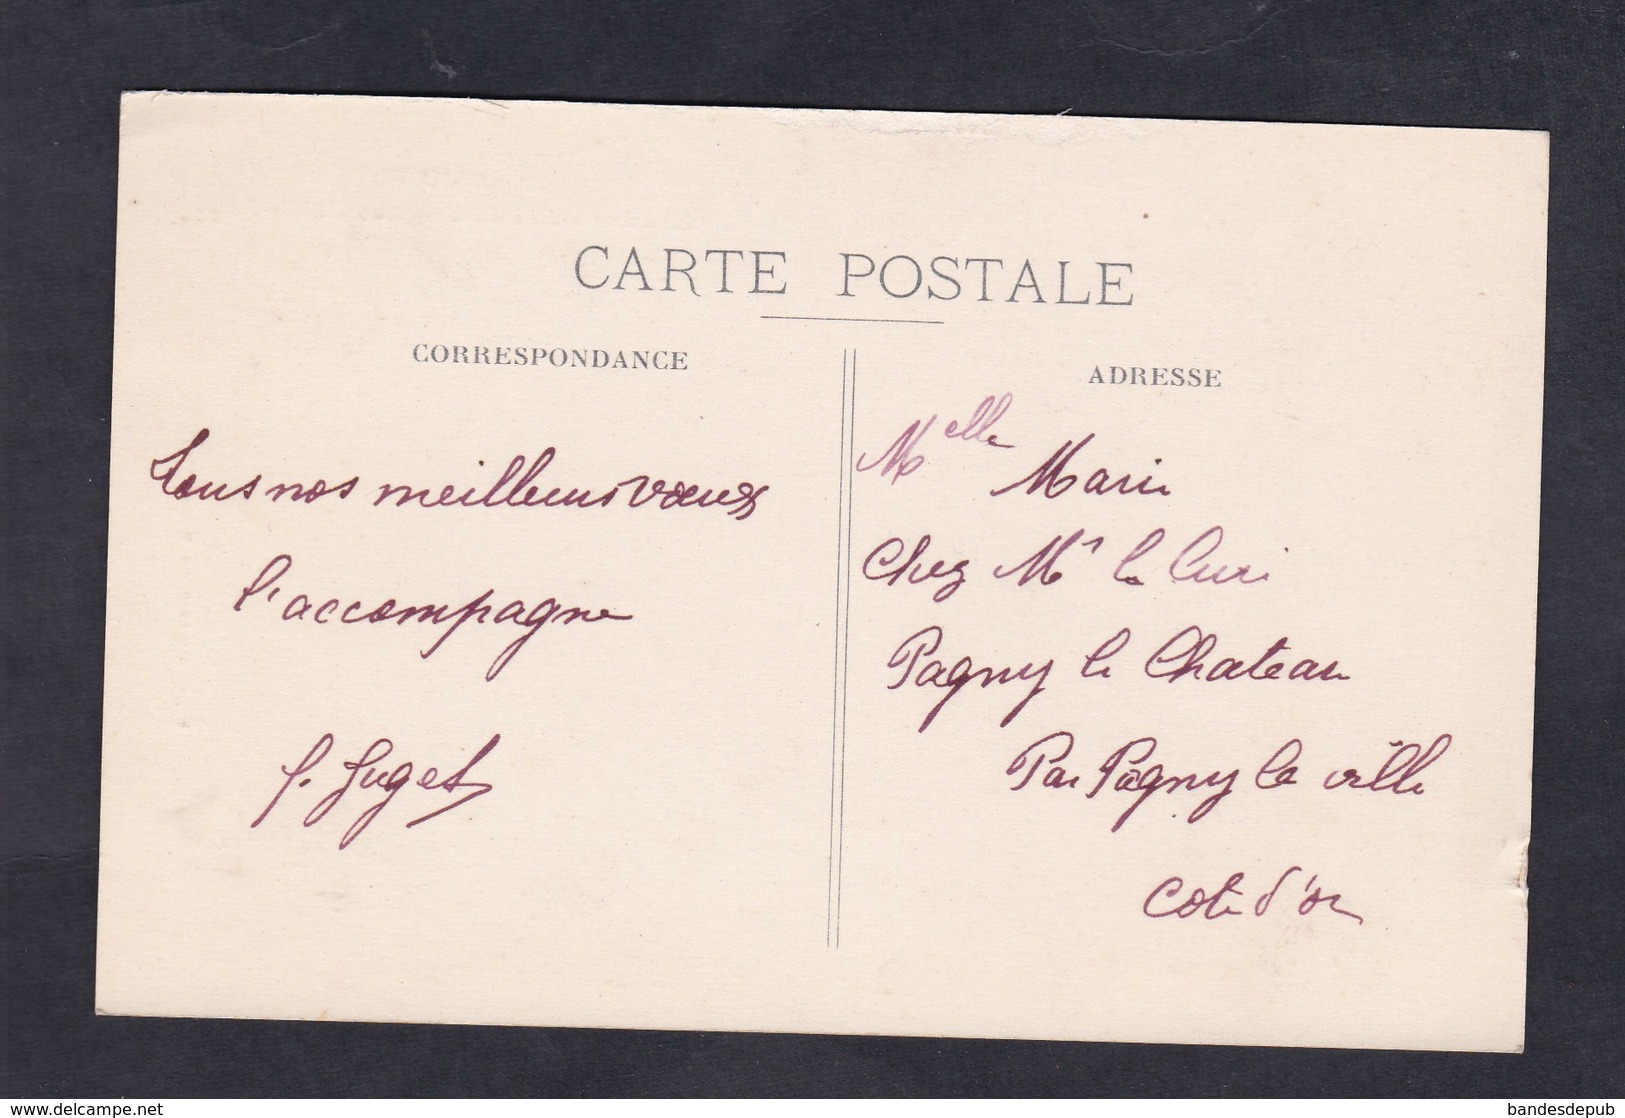 CARTE POSTALE
CORRESPONDANCE
Tous nos meilleurs vœux
l'accompagne
J. Juget
ADRESSE
Melle Marie
Chez Mr le Curé
Pagny le Chateau
Par Pagny la ville
Cote d'or
www.delcampe.net
bandesdepub